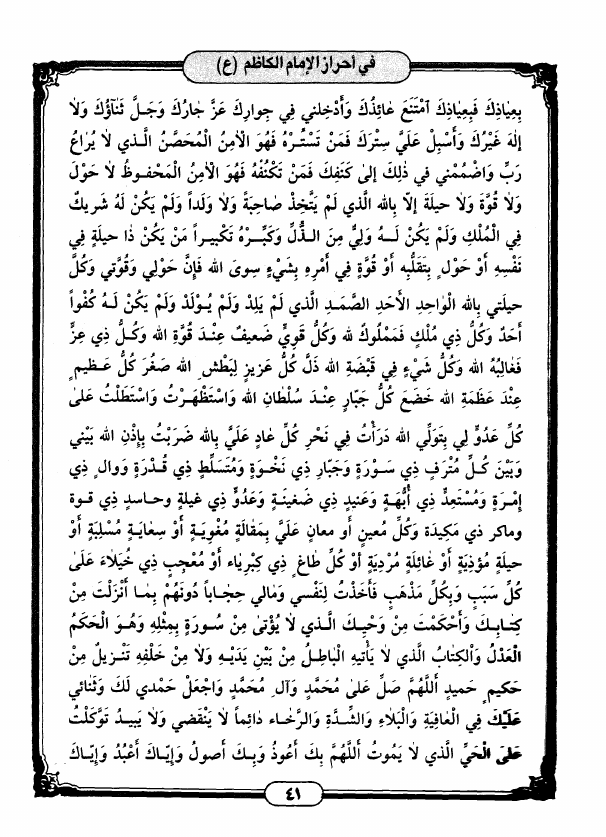 في أحراز الإمام الكاظم (ع)
بِعِياذِكَ فَبِعِياذِكَ آمْتَنَعَ عَائِذُكَ وَأَدْخِلني فِي جِوارِكَ عَزَّ جَارُكَ وَجَلَّ ثَنَاؤُكَ وَلاٰ
إلهَ غَيْرُكَ وَأَسْبِلْ عَلَيَّ سِتْرَكَ فَمَنْ تَسْتُرْهُ فَهُوَ الآمِنُ الْمُحَصَّنُ الَّذي لاٰ يُرَاعُ
رَبِّ وَاضْمُمْني في ذلِكَ إلى كَنَفِكَ فَمَنْ تَكْنُفْهُ فَهُوَ الآمِنُ الْمَحْفوظُ لاٰ حَوْلَ
وَلاٰ قُوَّةَ وَلاٰ حيلَةَ إلاّ بِالله الَّذي لَمْ يَتَّخِذْ صَاحِبَةً وَلاٰ وَلَداً وَلَمْ يَكُنْ لَهُ شَريكٌ
فِي الْمُلْكِ وَلَمْ يَكُنْ لَهُ وَلِيٌّ مِنَ الذُّلِّ وَكَبِّرْهُ تَكْبيراً مَنْ يَكُنْ ذَا حيلَةٍ في
نَفْسِهِ أَوْ حَوْلٍ بِتَقَلُّبِه أَوْ قُوَّةٍ في أَمْرِهِ بِشَيْءٍ سِوَى الله فَإنَّ حَوْلي وَقُوَّتي وَكُلَّ
حيلَتي بِالله الْواحِدِ الأَحَدِ الصَّمَدِ الَّذي لَمْ يَلِدْ وَلَمْ يُولَدْ وَلَمْ يَكُنْ لَهُ كُفُواً
أَحَدٌ وَكُلُّ ذِي مُلْكٍ فَمَمْلُوكٌ لله وَكُلُّ قَوِيٍّ ضَعيفٌ عِنْدَ قُوَّةِ الله وَكُلُّ ذي عِزٍّ
فَغَالِبُهُ الله وَكُلُّ شَيْءٍ في قَبْضَةِ الله ذَلَّ كُلُّ عَزيزٍ لِبَطْشِ الله صَغُرَ كُلُّ عَظيمٍ
عِنْدَ عَظَمَةِ الله خَضَعَ كُلُّ جَبَّارٍ عِنْدَ سُلْطَانِ الله وَاسْتَظْهَرْتُ وَاسْتَطَلْتُ عَلىٰ
كُلِّ عَدُوٍّ لي بِتَوَلِّي الله دَرَأْتُ في نَحْرِ كُلِّ عَادٍ عَلَيَّ بِالله ضَرَبْتُ بِإذْنِ الله بَيْني
وَبَيْنَ كُلِّ مُتْرَفٍ ذي سَوْرَةٍ وَجَبَّارٍ ذي نَخْوَةٍ وَمُتَسَلِّطٍ ذي قُدْرَةٍ وَوالٍ ذي
إمْرَةٍ وَمُسْتَعِدٍّ ذي أُبَّهَةٍ وَعَنيدٍ ذي ضَغينَةٍ وَعَدُوٍّ ذي غيلَةٍ وحاسدٍ ذي قوة
وماكر ذي مَكيدَة وَكُلِّ مُعينٍ أو معانٍ عَلَيَّ بِمَقَالَةٍ مُغْوِيَةٍ أَوْ سِعَايَةٍ مُسْلِبَةٍ أَوْ
حيلَةٍ مُؤذِيَةٍ أَوْ غَائِلَةٍ مُرْدِيَةٍ أوْ كُلِّ طَاغٍ ذي كِبْرِيَاء أَوْ مُعْجِبٍ ذي خُيَلاءَ عَلىٰ
كُلِّ سَبَبٍ وَبِكُلِّ مَذْهَبٍ فَأَخَذْتُ لِنَفْسي وَمَالي حِجَاباً دُونَهُمْ بِمَا أَنْزَلْتَ مِنْ
كِتَابِكَ وَأَحْكَمْتَ مِنْ وَحْيِكَ الَّذي لاٰ يُؤْتىٰ مِنْ سُورَةٍ بِمِثْلِهِ وَهُوَ الْحَكَمُ
الْعَدْلُ وَالْكِتَابُ الَّذي لاٰ يَأْتيهِ الْبَاطِلُ مِنْ بَيْنِ يَدَيْهِ وَلاٰ مِنْ خَلْفِهِ تَنْزيلٌ مِنْ
حَكيمٍ حَميدٍ أَللَّهُمَّ صَلِّ عَلىٰ مُحَمَّدٍ وَآلِ مُحَمَّدٍ وَاجْعَلْ حَمْدي لَكَ وَثَنائي
عَلَيْكَ فِي الْعَافِيَةِ وَالْبَلاٰءِ وَالشِّدَّةِ وَالرَّخَاء دَائِماً لاٰ يَنْقَضي وَلاٰ يَبيدُ تَوَكَّلْتُ
عَلَى الْحَيِّ الَّذي لاٰ يَمُوتُ أللَّهُمَّ بِكَ أَعُوذُ وَبِكَ أَصولُ وَإيَّاكَ أَعْبُدُ وَإيَّاكَ
٤١